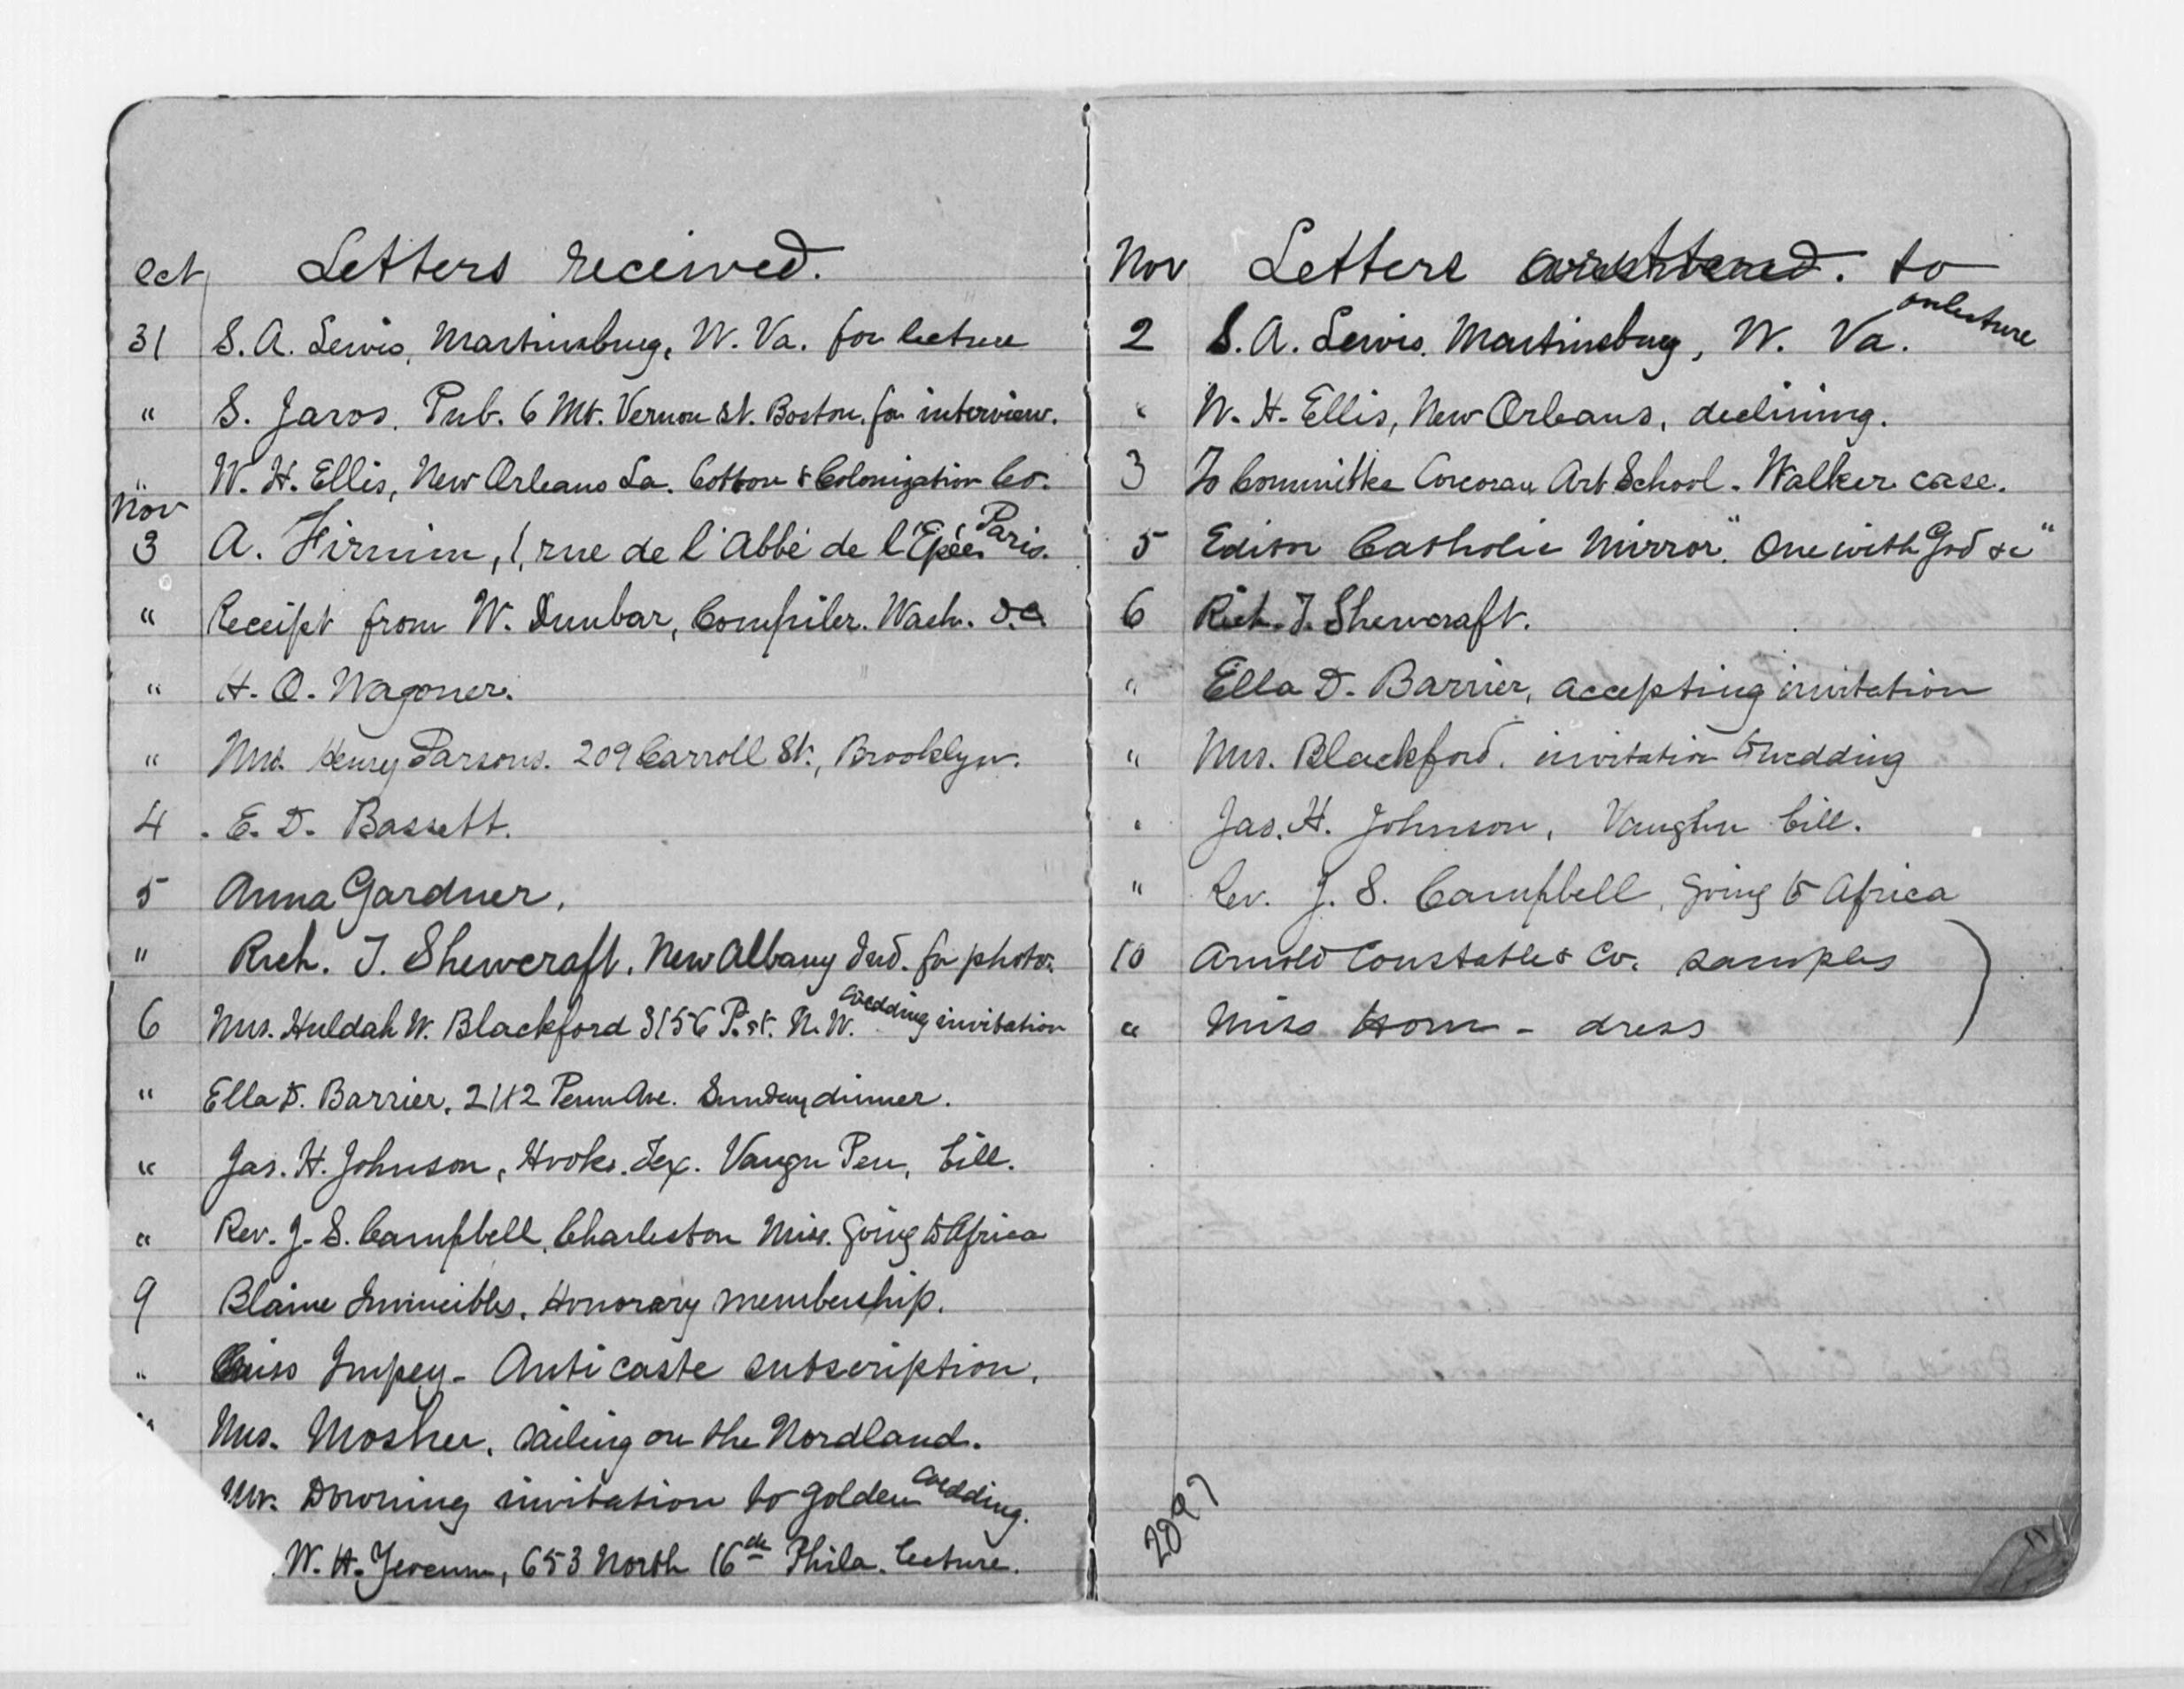 Oct Letters received.
31 S. A. Lewis, Martinsburg, W. Va. for lecture
" S. Jaros, Pub. 6 Mt. Vernon St. Boston. for interview.
" W. H. Ellis, New Orleans La. Cotton & Colonization Co.
Nov
3 A. Firmin, 1, rue de l'Abbé de l'Epée, Paris.
" Receipt from W. Dunbar, Compiler. Wash. D.C.
" H. O. Wagoner.
" Mrs. Henry Parsons. 209 Carroll St., Brooklyn.
4 . E. D. Bassett.
5 Anna Gardner.
" Rich. T. Shewcraft, New Albany Ind. for photo.
6 Mrs. Huldah W. Blackford 3156 P. st. N. W. wedding invitation
" Ella D. Barrier, 2112 Penn Ave. Sunday dinner.
" Jas. H. Johnson, Hooks, Tex. Vaugn Pen, bill.
" Rev. J. S. Campbell, Charleston Miss. going to Africa
9 Blaine Invincibles. Honorary membership.
" Miss Impey - Anti caste subscription.
" Mrs. Mosher, sailing on the Nordland.
Mr. Downing invitation to golden wedding.
W. H. 653 North 16th Phila. lecture.
Nov Letters to
2 S. A. Lewis, Martinsburg, W. Va. on lecture
" W. H. Ellis, New Orleans, declining.
3 To Committee Corcoran Art School - Walker case.
5 Editor Catholic Mirror "One with God &c"
6 Rich. T. Shewcraft.
" Ella D. Barrier, accepting invitation
" Mrs. Blackford. invitation to wedding
" Jas. H. Johnson, Vaughn bill.
" Rev. J. S. Campbell, going to Africa
10 Arnold Constable & Co. samples
" Miss Horn - dress
2097
11